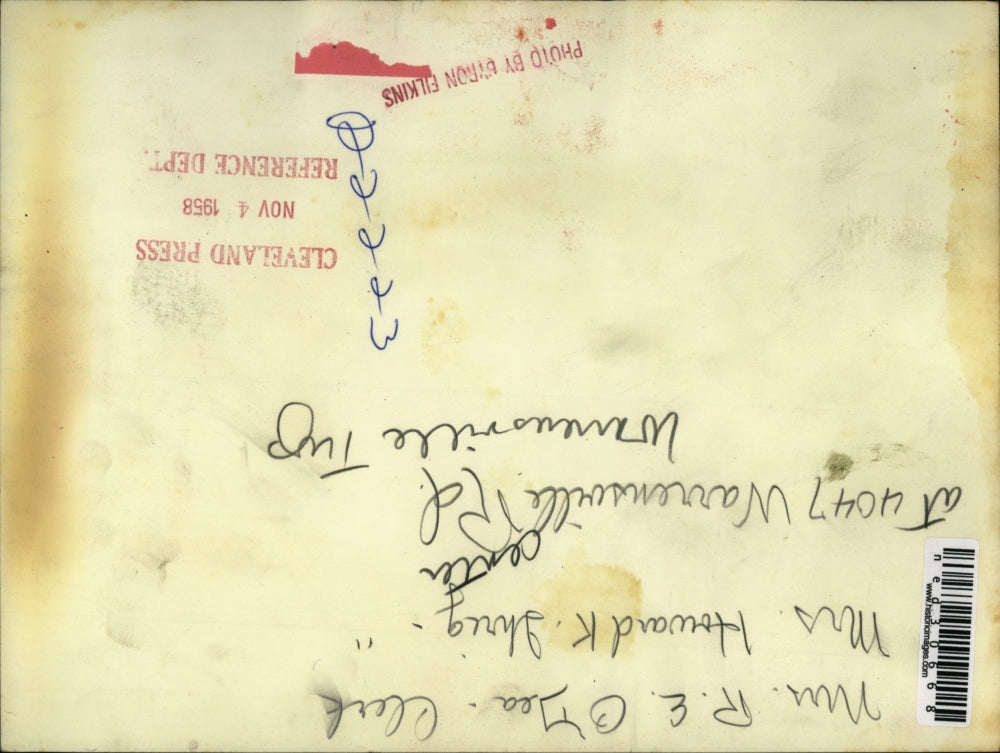 Mrs. R.E. O'Dea - Clerk
Mrs. Howard K. Ihrig - "
center
at 4047 Warrensville Rd.
Warrensville Twp
CLEVELAND PRESS
NOV 4 1958
REFERENCE DEPT.
PHOTO BY BYRON FILKINS
ned30668
www.historicimages.com